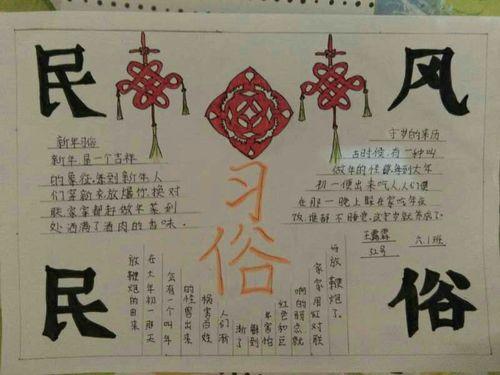 民
风
民
俗
习
俗
新年习俗
新年是一个吉祥
的象征,每到新年人
们等新衣放爆竹,换对
联,家家都赶做年菜,到
处洒满了酒肉的香味。
守岁的来历
古时候,有一种叫
做年的怪兽,每到大年
初一便出来吃人,人们便
在那一晚上躲在家吃年夜
饭,
不睡觉,这
守岁就养成了。
王露霖
52号
六.1班
放鞭炮的由来
在大年初一那天
会有一个叫年
的怪兽出来
祸害百姓
人们渐
渐了
解到
年害怕
红色和巨
响的弱点就
家家用红对联
放鞭炮了。